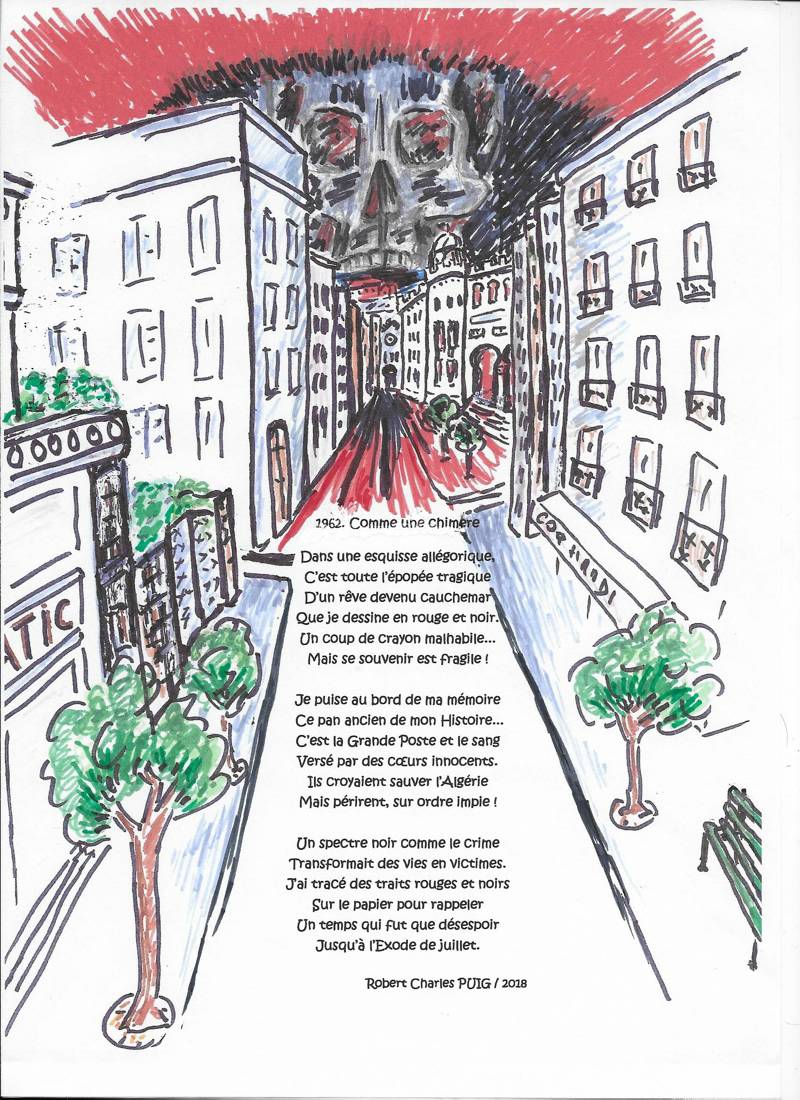 1962. Comme une chimère
Dans une esquisse allégorique,
C'est toute l'épopée tragique
D'un rêve devenu cauchemar
Que je dessine en rouge et noir.
Un coup de crayon malhabile...
Mais se souvenir est fragile !
Je puise au bord de ma mémoire
Ce pan ancien de mon Histoire...
C'est la Grande Poste et le sang
Versé par des cœurs innocents.
Ils croyaient sauver l'Algérie
Mais périrent, sur ordre impie !
Un spectre noir comme le crime
Transformait des vies en victimes.
J'ai tracé des traits rouges et noirs
Sur le papier pour rappeler
Un temps qui fut que désespoir
Jusqu'à l'Exode de juillet.
Robert Charles PUIG / 2018
ATIC